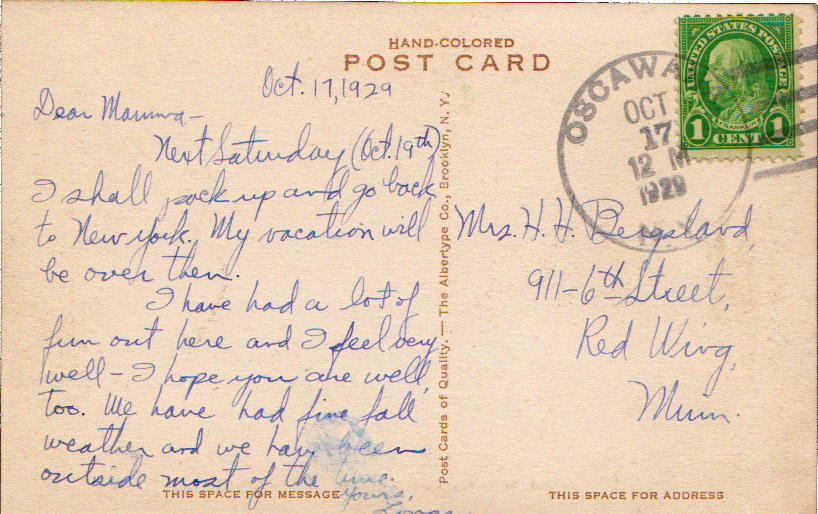 HAND-COLORED
POST CARD
Oct. 17, 1929
Dear Mamma-
Next Saturday (Oct. 19th)
I shall pack up and go back
to New York. My vacation will
be over then.
I have had a lot of
fun out here and I feel very
well - I hope you are well,
too. We have had fine fall
weather and we have been
outside most of the time.
Yours,
THIS SPACE FOR MESSAGE
Post Cards of Quality. — The Albertype Co., Brooklyn, N. Y.
OSCAWA
OCT
17
12 M
1929
N.Y.
UNITED STATES POSTAGE
FRANKLIN
1 CENT 1
Mrs. H. H. Bergsland,
911-6th Street,
Red Wing,
Minn.
THIS SPACE FOR ADDRESS